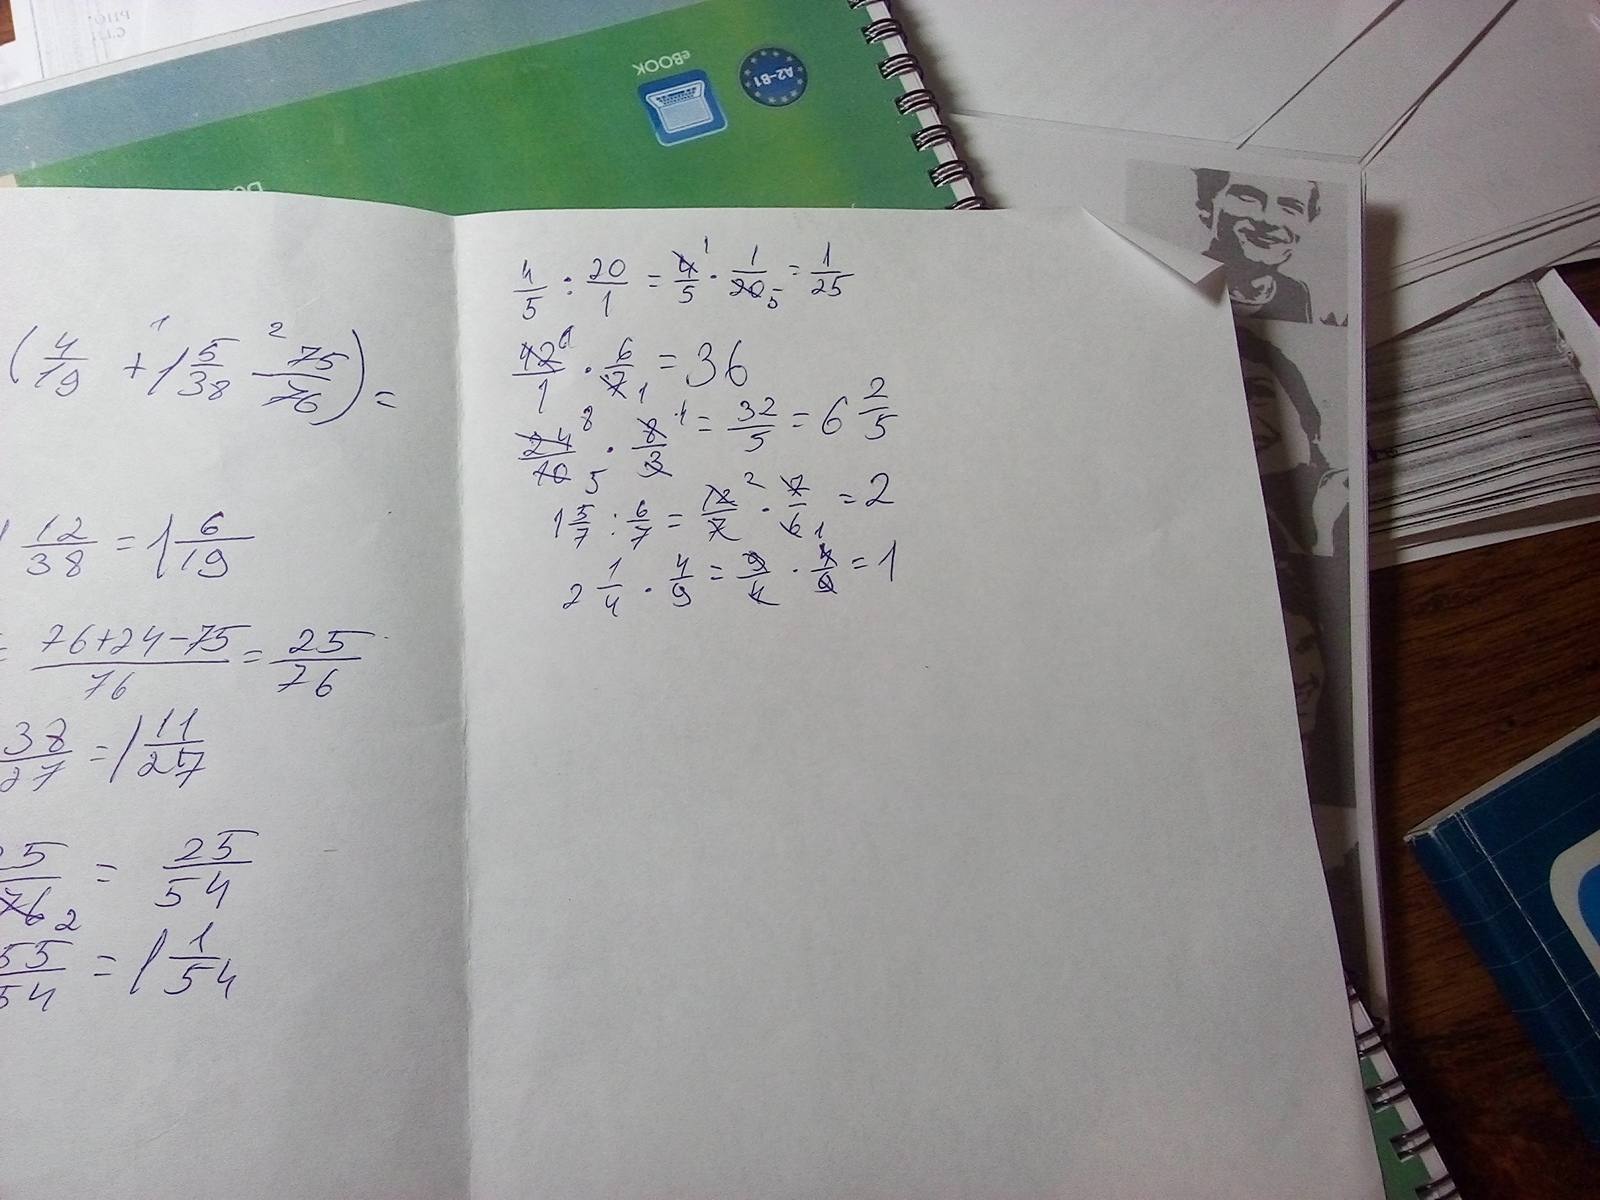 eBOOK
A2-B1
(4/19 + 1 5/38 75/76) =
1 2
12/38 = 1 6/19
= 76+24-75/76 = 25/76
38/27 = 1 11/27
25/76 2 = 25/54
55/54 = 1 1/54
4/5 : 20/1 = 4/5 1 · 1/20 5 = 1/25
42/1 6 · 6/7 1 = 36
24/10 8 5 · 8/3 4 = 32/5 = 6 2/5
1 5/7 : 6/7 = 12/7 2 · 7/6 1 = 2
2 1/4 · 4/9 = 9/4 · 4/9 = 1